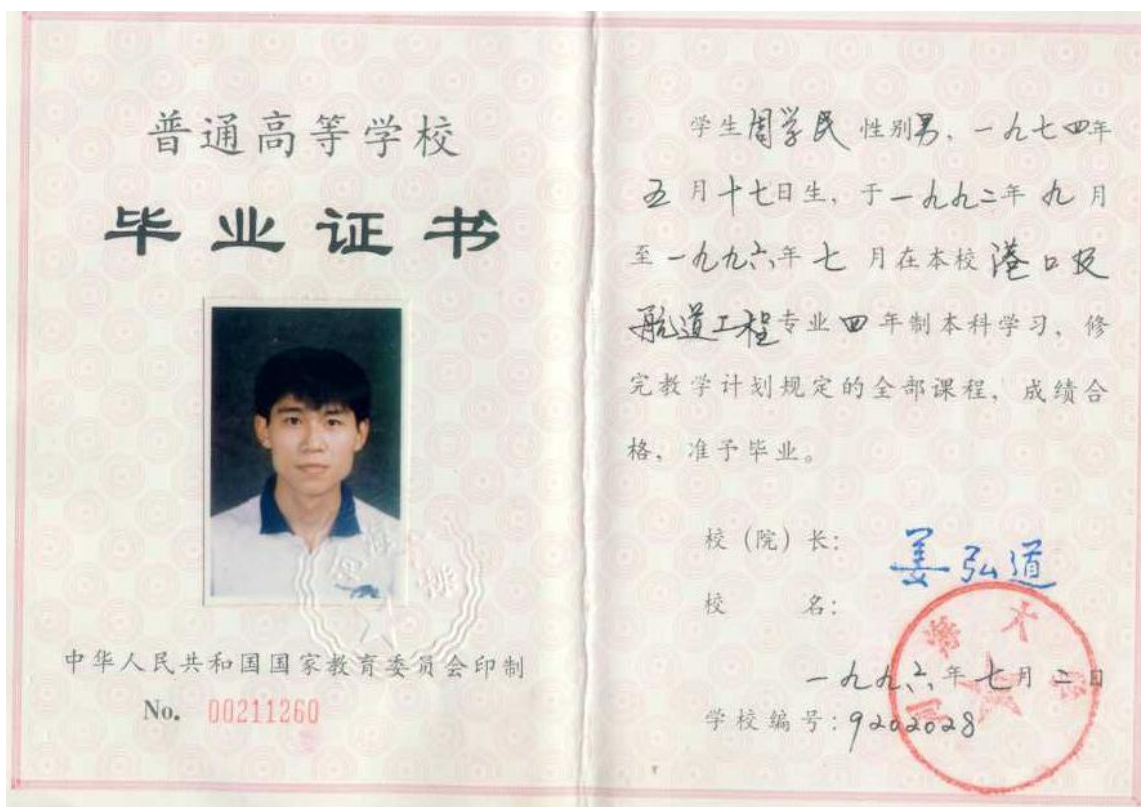 普通高等学校
毕业证书
中华人民共和国国家教育委员会印制
No. 00211260
学生周学民 性别男、一九七四年
五月十七日生，于一九九二年九月
至一九九六年七月在本校港口及
航道工程专业四年制本科学习，修
完教学计划规定的全部课程，成绩合
格，准予毕业。
校（院）长：姜弘道
校 名：
河海大学
一九九六年七月二日
学校编号：9202028